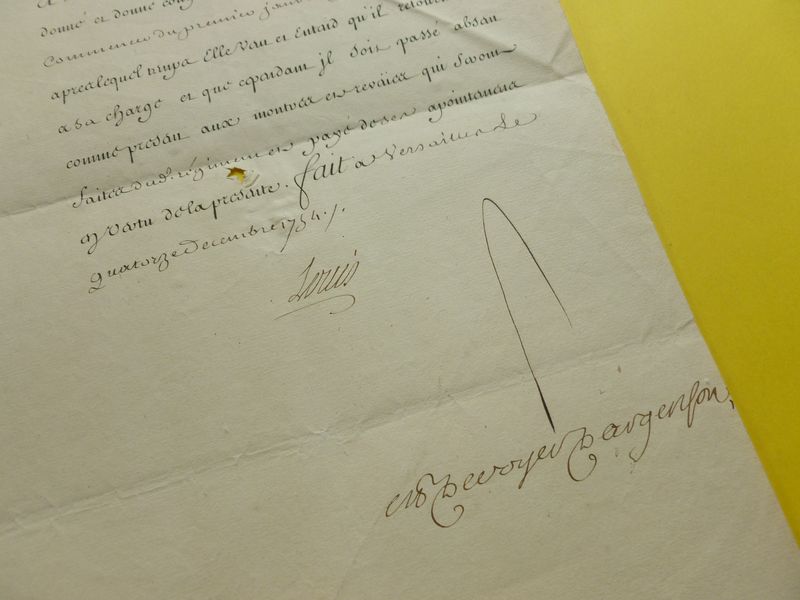 donné et donne
Commencer du premier jour
apres lequel temps Elle Veut et Entend qu'il retour
a sa charge et que cependant jl soit passé absan
comme presant aux montres et reveües qui Seront
faites dud. régiment et payé de ses apointemens
en Vertu de la presante. fait a Versailles Le
Quatorze Decembre 1754./.
Louis
De voyer D'argenson